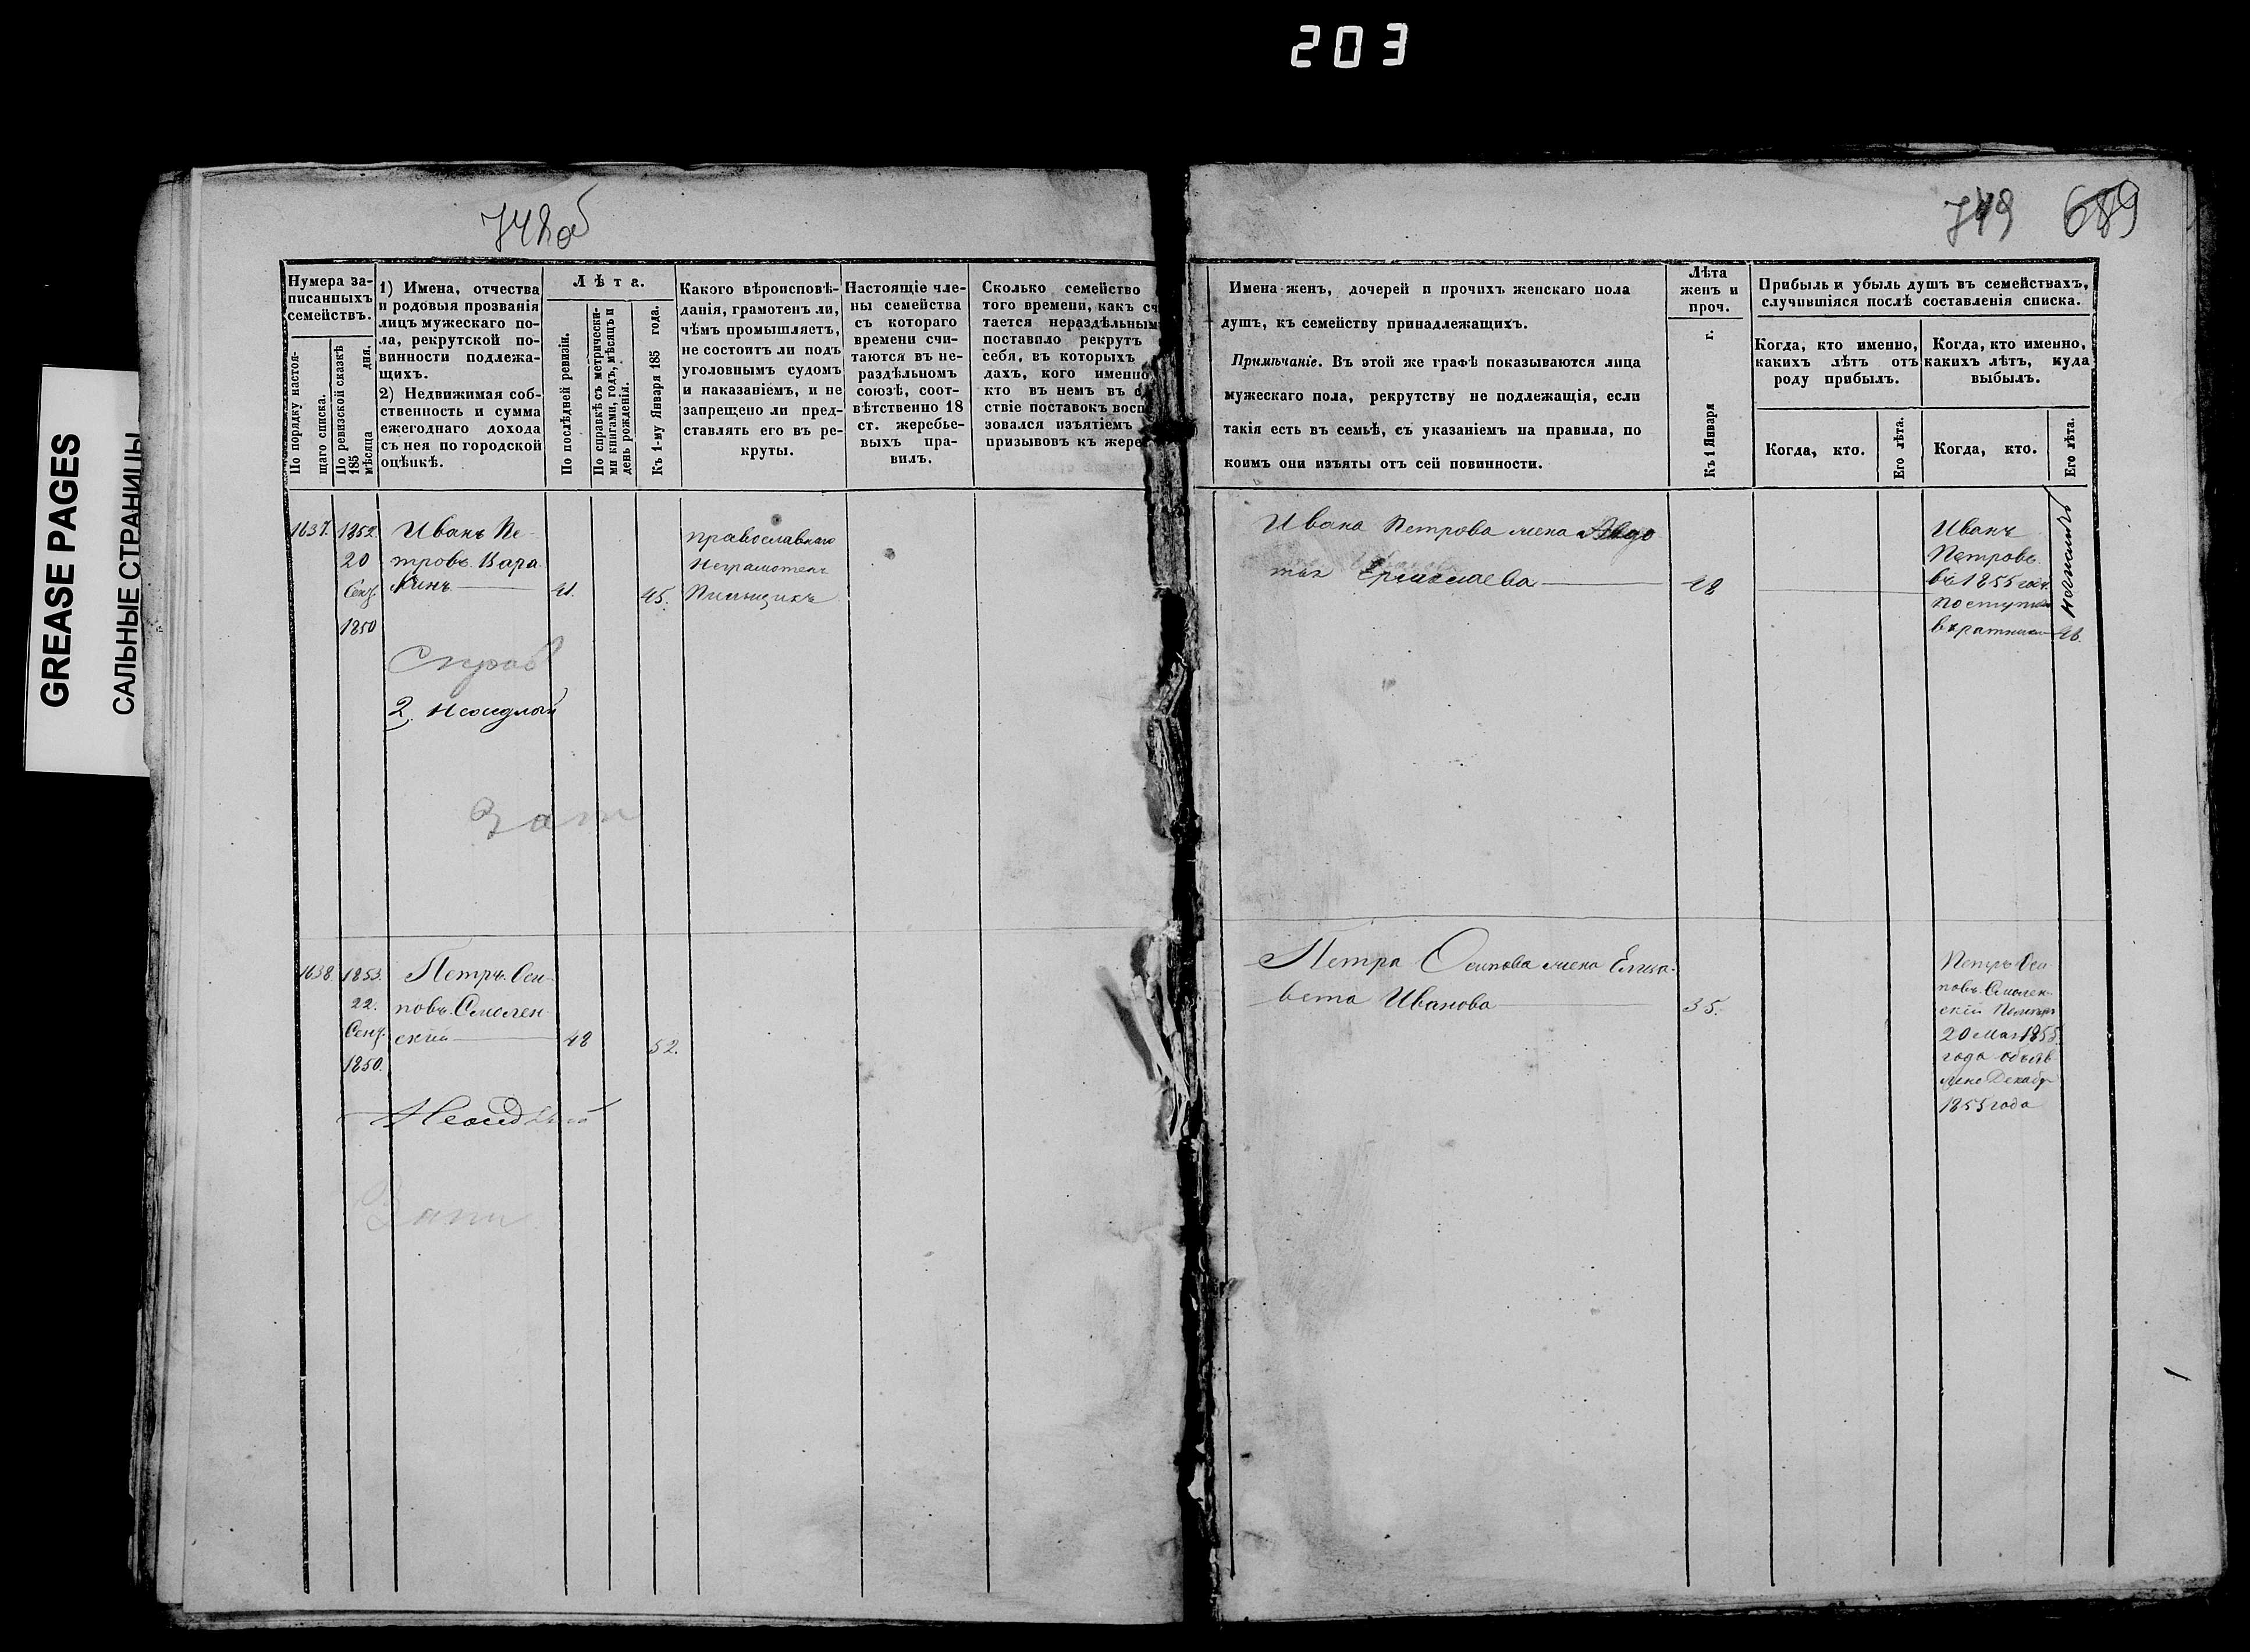 203
GREASE PAGES
САЛЬНЫЕ СТРАНИЦЫ
748об
Нумера за-
писанныхъ
семействъ.
По порядку настоя-
щаго списка.
По ревизской сказкѣ
185 дня.
мѣсяца
1) Имена, отчества
и родовыя прозванія
лицъ мужескаго по-
ла, рекрутской по-
винности подлежа-
щихъ.
2) Недвижимая соб-
ственность и сумма
ежегоднаго дохода
съ нея по городской
оцѣнкѣ.
Лѣта.
По послѣдней ревизіи.
По справкѣ съ метрически-
ми книгами, годъ, мѣсяцъ и
день рожденія.
Къ 1-му Января 185 года.
Какого вѣроисповѣ-
данія, грамотенъ ли,
чѣмъ промышляетъ,
не состоитъ ли подъ
уголовнымъ судомъ
и наказаніемъ, и не
запрещено ли пред-
ставлять его въ ре-
круты.
Настоящіе чле-
ны семейства
съ котораго
времени счи-
таются въ не-
раздѣльномъ
союзѣ, соот-
вѣтственно 18
ст. жеребье-
выхъ пра-
вилъ.
Сколько семейство
того времени, какъ сч
тается нераздѣльным
поставило рекрутъ
себя, въ которыхъ
дахъ, кого именно
кто въ немъ въ с
ствіе поставокъ восп
зовался изъятіемъ
призывовъ къ жере
1637.
1852.
20
Сент.
1850
Иванъ Пе-
тровъ Вара
кинъ
41.
45.
православнаго
Неграмотенъ
Пильщикъ
Справ
2. Неоседлый
Зап
1638.
1853.
22.
Сент.
1850.
Петръ Оси-
повъ Смолен-
скій
48
52.
Неоседлый
Зап
749 689
Имена женъ, дочерей и прочихъ женскаго пола
душъ, къ семейству принадлежащихъ.
Примѣчаніе. Въ этой же графѣ показываются лица
мужескаго пола, рекрутству не подлежащія, если
такія есть въ семьѣ, съ указаніемъ на правила, по
коимъ они изъяты отъ сей повинности.
Лѣта
женъ и
проч.
Къ 1 Января г.
Прибыль и убыль душъ въ семействахъ,
случившіяся послѣ составленія списка.
Когда, кто именно,
какихъ лѣтъ отъ
роду прибылъ.
Когда, кто именно,
какихъ лѣтъ, куда
выбылъ.
Когда, кто.
Его лѣта.
Когда, кто.
Его лѣта.
Ивана Петрова жена Авдо
тья Ермолаева
28
Иванъ
Петровъ
въ 1855 год.
поступил
въ ратники
46.
Петра Осипова жена Елиза-
вета Иванова
35.
Петръ Оси
повъ Смолен-
скій Помѣръ
20 мая 1855
года объяв
лено Декабр
1855 года